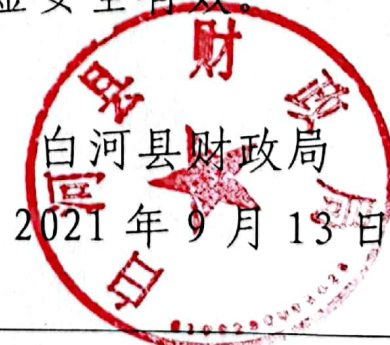 安全有效。
白河县财政局
2021年9月13日
白河县财政局